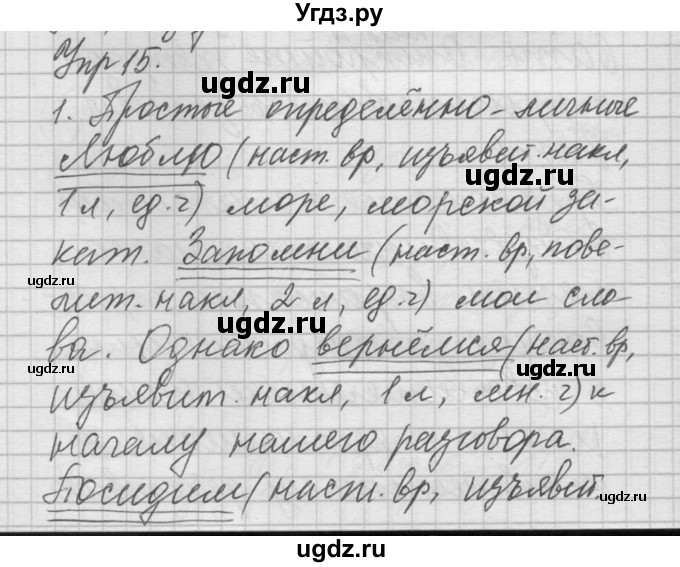 Угдз.ру
Упр 15.
ugdz.ru
1. Простые определённо-личные
Люблю (наст. вр, изъявит. накл,
ugdz.ru
1 л, ед. ч) море, морской за-
кат. Запомни (наст. вр, пове-
ugdz.ru
лит. накл, 2 л, ед. ч) мои сло-
ugdz.ru
ва. Однако вернёмся (наст. вр,
ugdz.ru
изъявит. накл, 1 л, мн. ч) к
началу нашего разговора.
ugdz.ru
Посидим (наст. вр, изъявит.
ugdz.ru
ugdz.ru